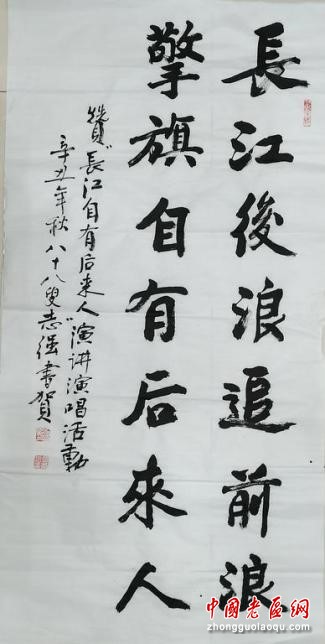 長江後浪追前浪
擎旗自有后來人
贊“長江自有后来人”演讲演唱活動
辛丑年秋八十八叟志强書贺
中國老區網
zhongguolaoqu.com